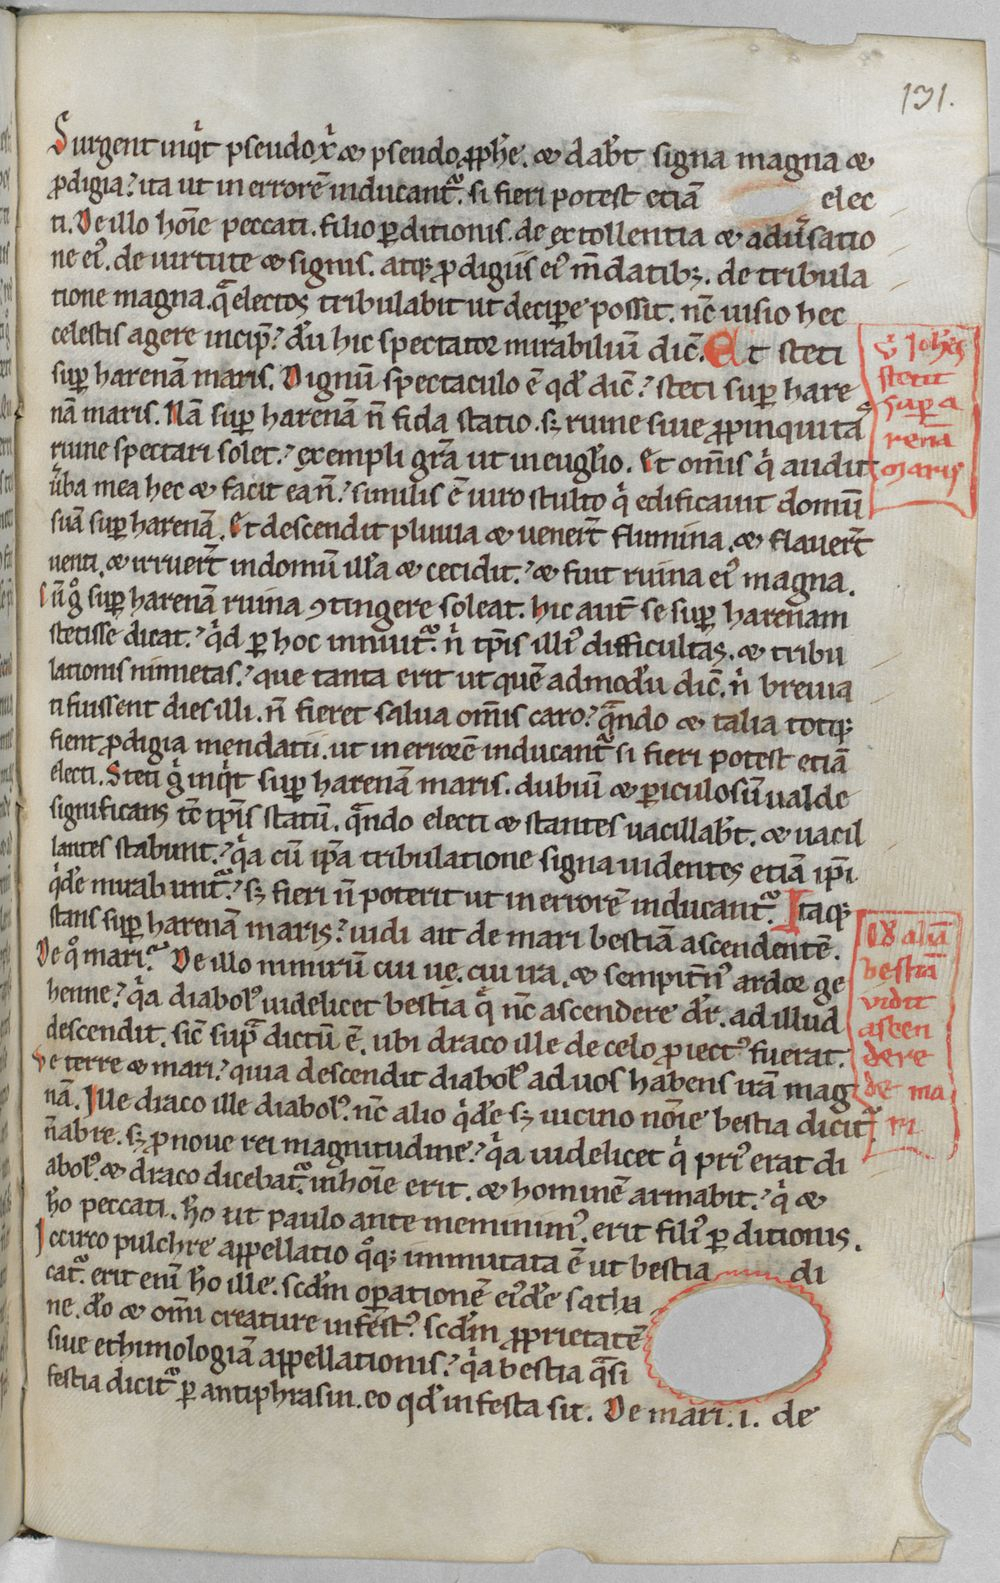 131.
Surgent inqͥt pseudoxͥ & pseudo ꝓph̄e. & dab̄t signa magna &
ꝓdigia? ita ut in errorē inducant᷑. si fieri potest etiā elec
ti. De illo hoīe peccati. filio ꝑditionis. de extollentia & adũsatio
ne eiꝰ. de uirtute & signis. atqꝫ ꝓdigiis eiꝰ m̄datibꝫ. de tribula
tione magna. qͣ electos tribulabit ut deciꝑe possit. nc̄ uisio hec
celestis agere incip̄? dū hic spectator mirabiliū dic̄. Et steti
suꝑ harenā maris. Dignū spectaculo ē qd̄ dic̄? steti suꝑ hare
nā maris. Nā suꝑ harenā n̄ fida statio. sꝫ ruine siue ꝓpinquita
ruine spectari solet? exempli gr̄a ut in eugl̄io. Et om̄is qͥ audit
ũba mea hec & facit ea n̄? similis ē uiro stulto qͥ edificauit domū
suā suꝑ harenā. Et descendit pluuia & uener̄t flumina. & flauer̄t
uenti. & irruer̄t in domū illā & cecidit? & fuit ruina eiꝰ magna.
Cū gͦ suꝑ harenā ruina ꝯtingere soleat. hic aut̄ se suꝑ harenam
stetisse dicat? qͥd ꝑ hoc innuit᷑. nͥ tp̄is illiꝰ difficultas. & tribu
lationis nimietas? que tanta erit ut quē admodū dic̄. nͥ breuia
ti fuissent dies illi. n̄ fieret salua om̄is caro? qͣndo & talia totqꝫ
fient ꝓdigia mendatii. ut in errorē inducant᷑ si fieri potest etiā
electi. Steti gͦ inqͥt suꝑ harenā maris. dubiū & ꝑiculosū ualde
significans tc̄ tp̄is statū. qͣndo electi & stantes uacillab̄t. & uacil
lantes stabunt? qͥa cū ip̄a tribulatione signa uidentes etiā ip̄i
qͥdē mirabunt᷑? sꝫ fieri n̄ poterit ut in errorē inducant᷑. Itaqꝫ
stans suꝑ harenā maris? uidi ait de mari bestiā ascendentē.
De qͦ mari? De illo nimirū cui ue. cui ira. & sempitn̄ꝰ ardor ge
henne? qͥa diabolꝰ uidelicet bestia qͥ nc̄ ascendere dr̄. ad illud
descendit. sic̄ supͣ dictū ē. ubi draco ille de celo ꝓiectꝰ fuerat.
Ve terre & mari? quia descendit diabolꝰ ad uos habens irā mag
nā. Ille draco ille diabolꝰ. nc̄ alio qͥdē sꝫ uicino noīe bestia dicit᷑.
n̄ ab re. sꝫ ꝓ noue rei magnitudine? qͥa uidelicet qͥ priꝰ erat di
abolꝰ & draco dicebat᷑. in hoīe erit. & hominē armabit? qͥ &
hō peccati. hō ut paulo ante meminimꝰ. erit filiꝰ ꝑditionis.
Iccirco pulchre appellatio qͦqꝫ immutata ē ut bestia di
cat᷑. erit enī hō ille. scd̄m oꝑationē eiꝰdē satha
ne. dō & om̄i creature infestꝰ. scd̄m ꝓprietatē
siue ethimologiā appellationis? qͥa bestia qͣsi
festia dicit᷑ ꝑ antiphrasin. eo qd̄ infesta sit. De mari .i. de
Joh̄es
stetit
suꝑ a
renā
maris
aliā
bestiā
vidit
ascen
dere
de ma
ri